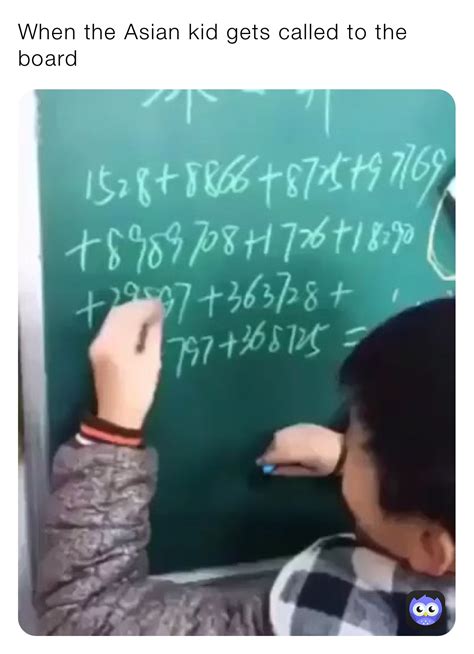 When the Asian kid gets called to the
board
1528+8866+8725+97769
+8989708+1726+18290
+363728+
797+368725=